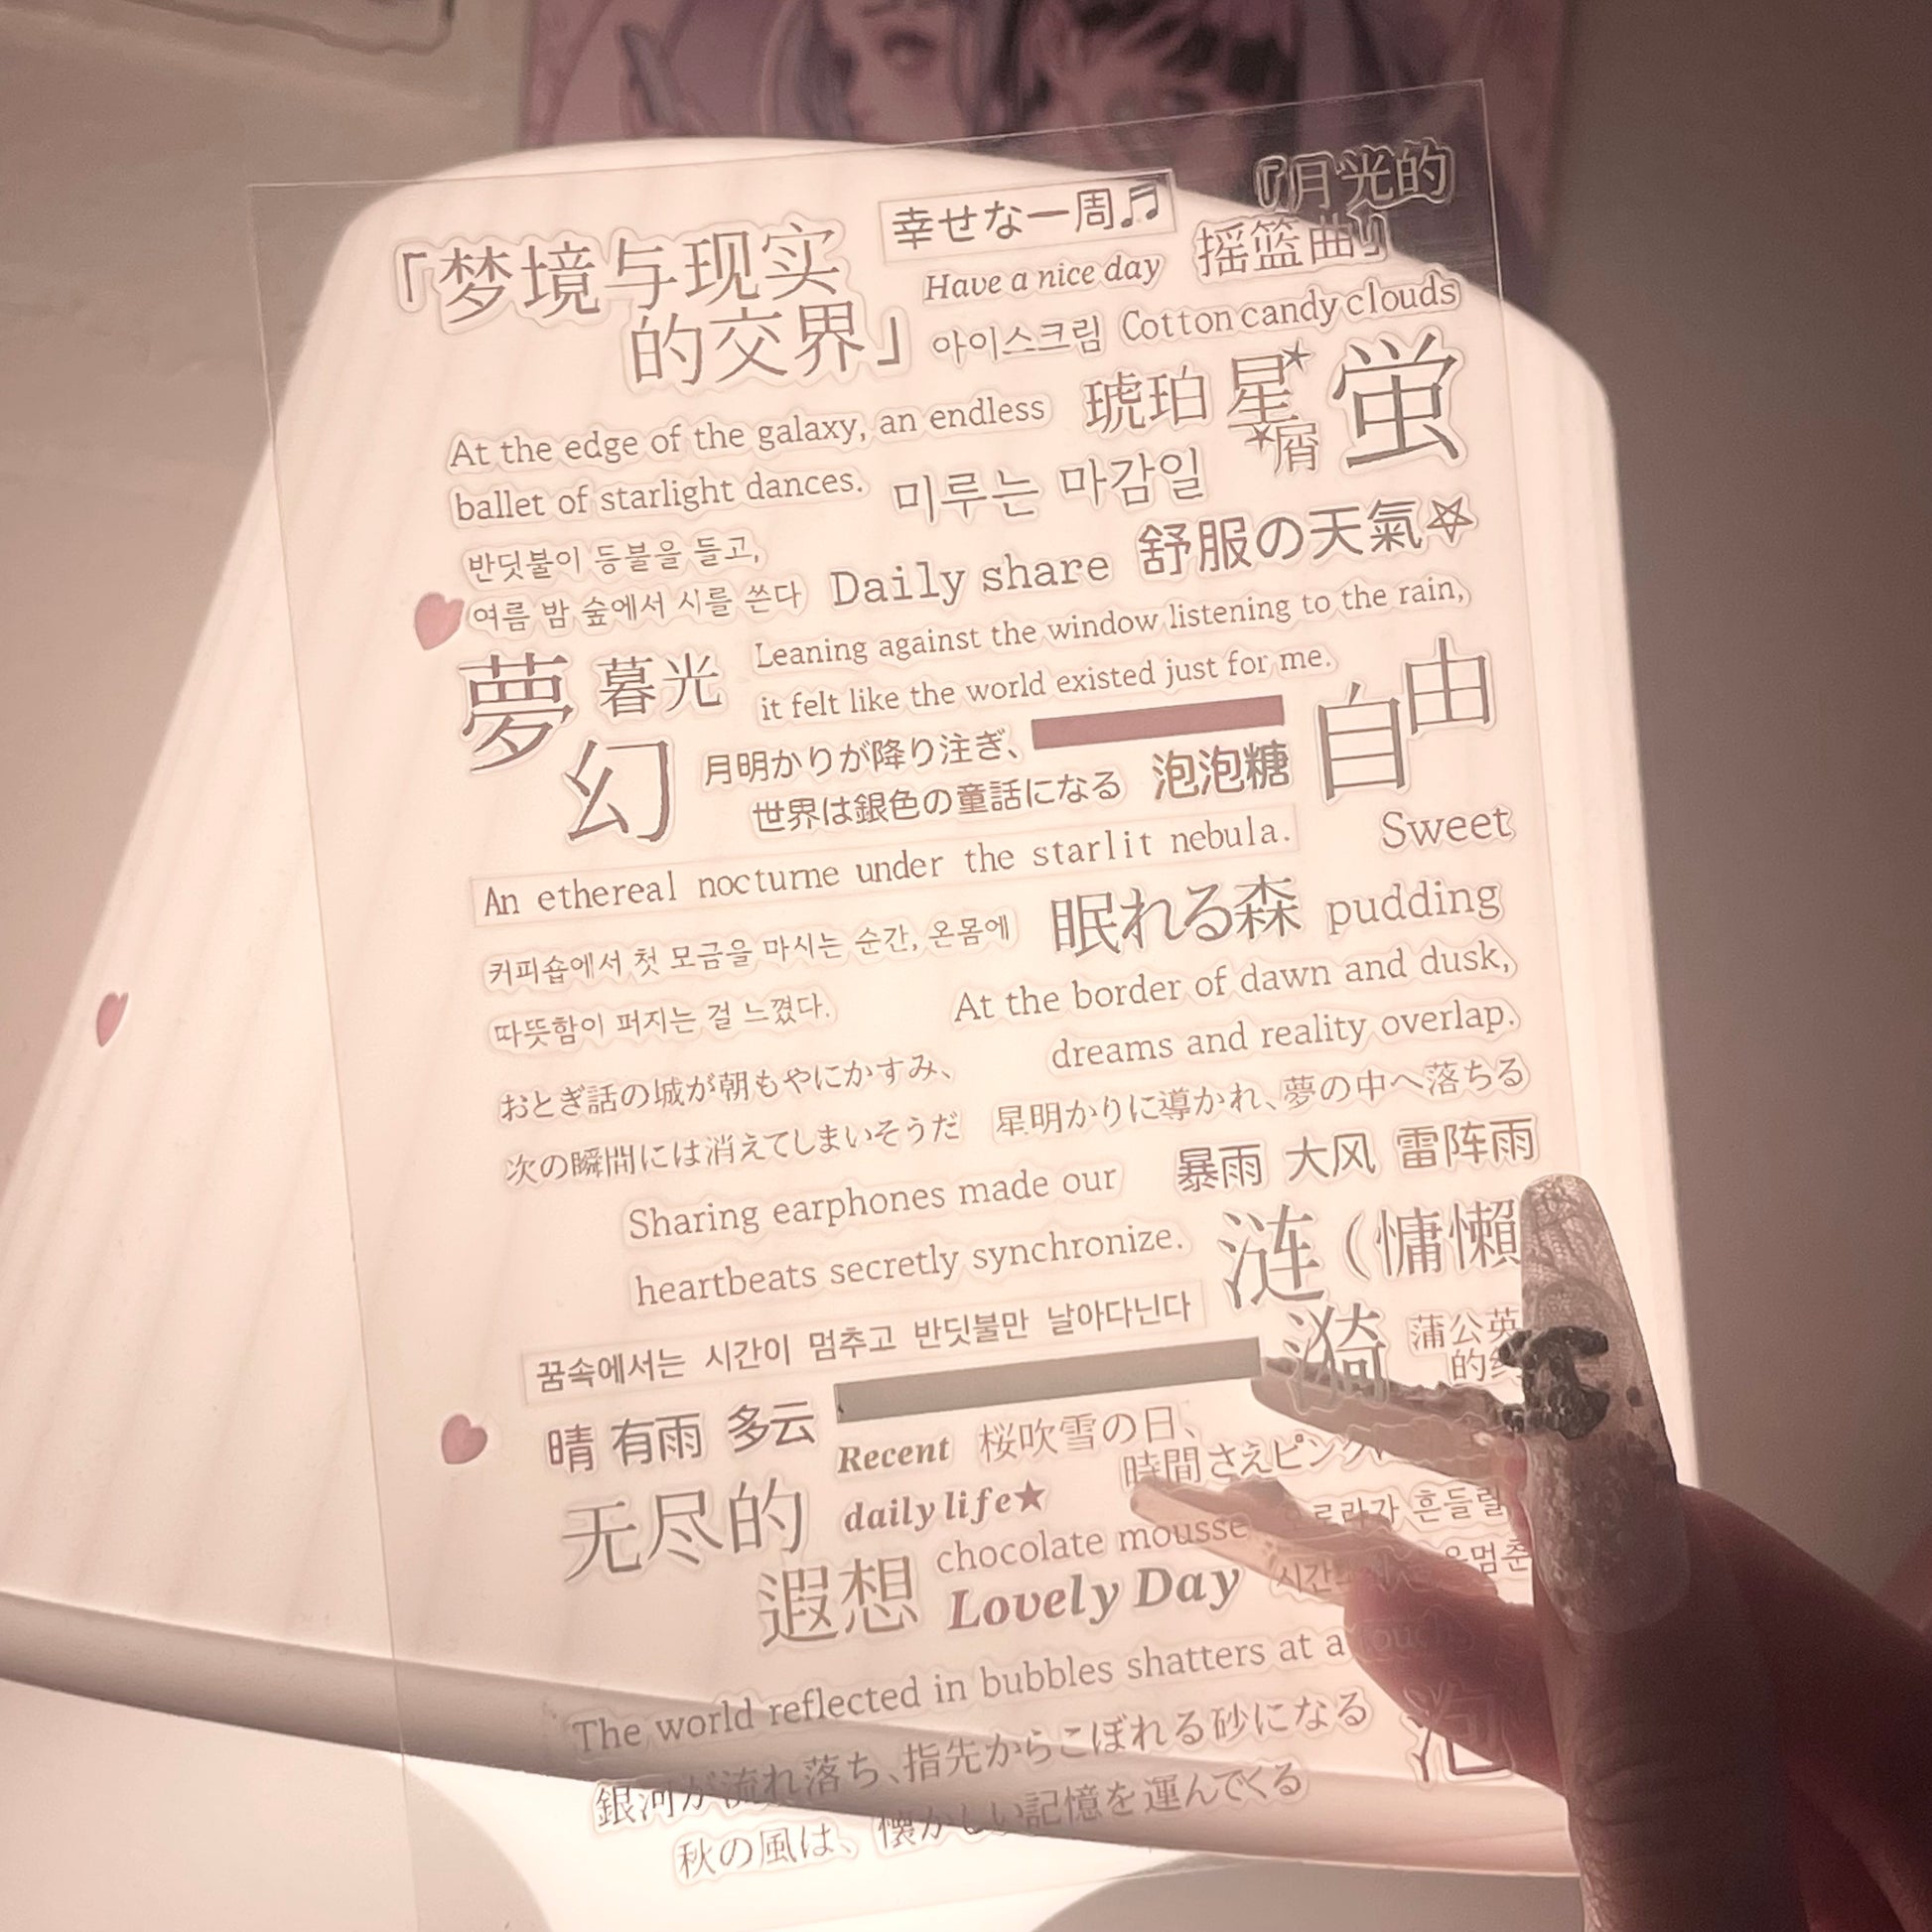 「梦境与现实
的交界」
幸せな一周♬
Have a nice day
『月光的
摇篮曲』
아이스크림
Cotton candy clouds
At the edge of the galaxy, an endless
ballet of starlight dances.
琥珀
星
屑
蛍
미루는 마감일
반딧불이 등불을 들고,
여름 밤 숲에서 시를 쓴다
Daily share
舒服の天氣
夢
幻
暮光
Leaning against the window listening to the rain,
it felt like the world existed just for me.
自由
月明かりが降り注ぎ、
世界は銀色の童話になる
泡泡糖
An ethereal nocturne under the starlit nebula.
Sweet
pudding
커피숍에서 첫 모금을 마시는 순간, 온몸에
따뜻함이 퍼지는 걸 느꼈다.
眠れる森
At the border of dawn and dusk,
dreams and reality overlap.
おとぎ話の城が朝もやにかすみ、
次の瞬間には消えてしまいそうだ
星明かりに導かれ、夢の中へ落ちる
Sharing earphones made our
heartbeats secretly synchronize.
暴雨 大风 雷阵雨
涟
漪
(慵懶
蒲公英
的
꿈속에서는 시간이 멈추고 반딧불만 날아다닌다
晴 有雨 多云
Recent
daily life★
桜吹雪の日、
時間さえピンク
无尽的
遐想
chocolate mousse
Lovely Day
흔들릴
The world reflected in bubbles shatters at a touch
銀河が流れ落ち、指先からこぼれる砂になる
秋の風は、懐かしい記憶を運んでくる
泡